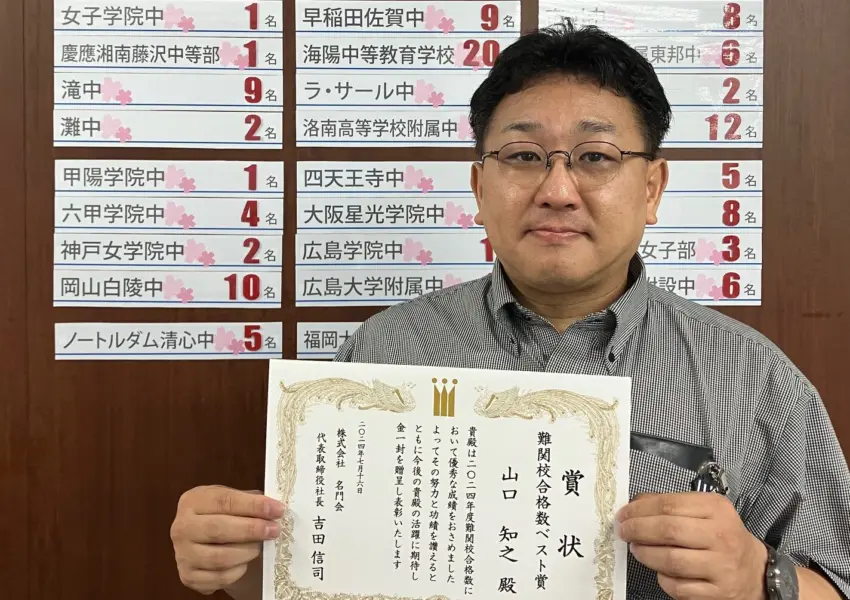 女子学院中 1名
慶應湘南藤沢中等部 1名
滝中 9名
灘中 2名
甲陽学院中 1名
六甲学院中 4名
神戸女学院中 2名
岡山白陵中 10名
ノートルダム清心中 5名
早稲田佐賀中 9名
海陽中等教育学校 20
ラ・サール中
洛南高等学校附属中
四天王寺中
大阪星光学院中
広島学院中 1
広島大学附属中
福岡
8名
東邦中 6名
2名
12名
5名
8名
女子部 3名
附設中 6名
賞状
難関校合格数ベスト賞
山口 知之 殿
貴殿は二〇二四年度難関校合格数に
おいて優秀な成績をおさめました
よってその努力と功績を讃えると
ともに今後の貴殿の活躍に期待し
金一封を贈呈し表彰いたします
二〇二四年七月十六日
株式会社 名門会
代表取締役社長 吉田 信司